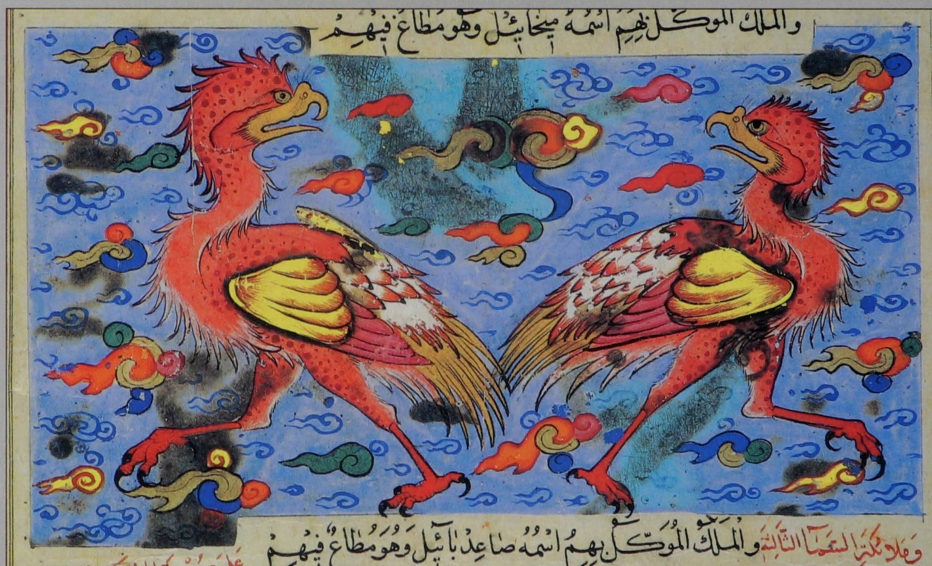 والملك الموكل بهم اسمه ميخائيل وهو مطاع فيهم
وملائكة السماء الثالثة والملك الموكل بهم اسمه صاعديائيل وهو مطاع فيهم
على